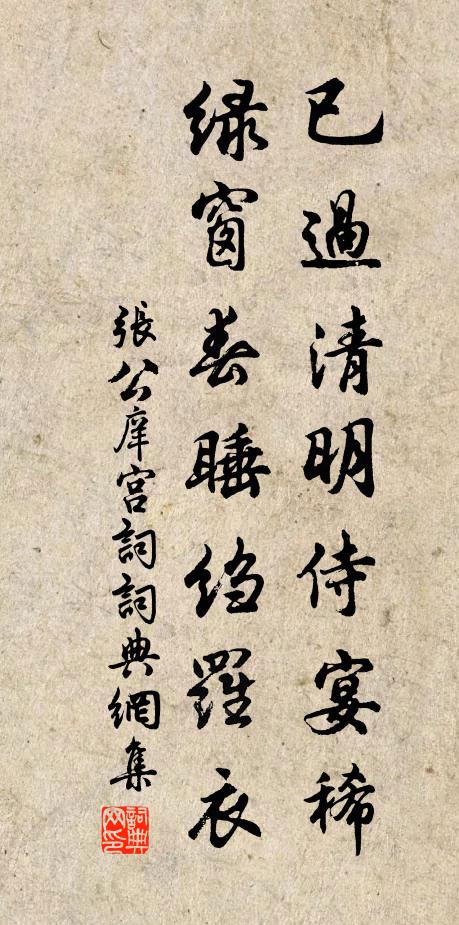 已過清明侍宴稀
緑窗春睡縐羅衣
張公庠宮詞詞典網集
詞典网印